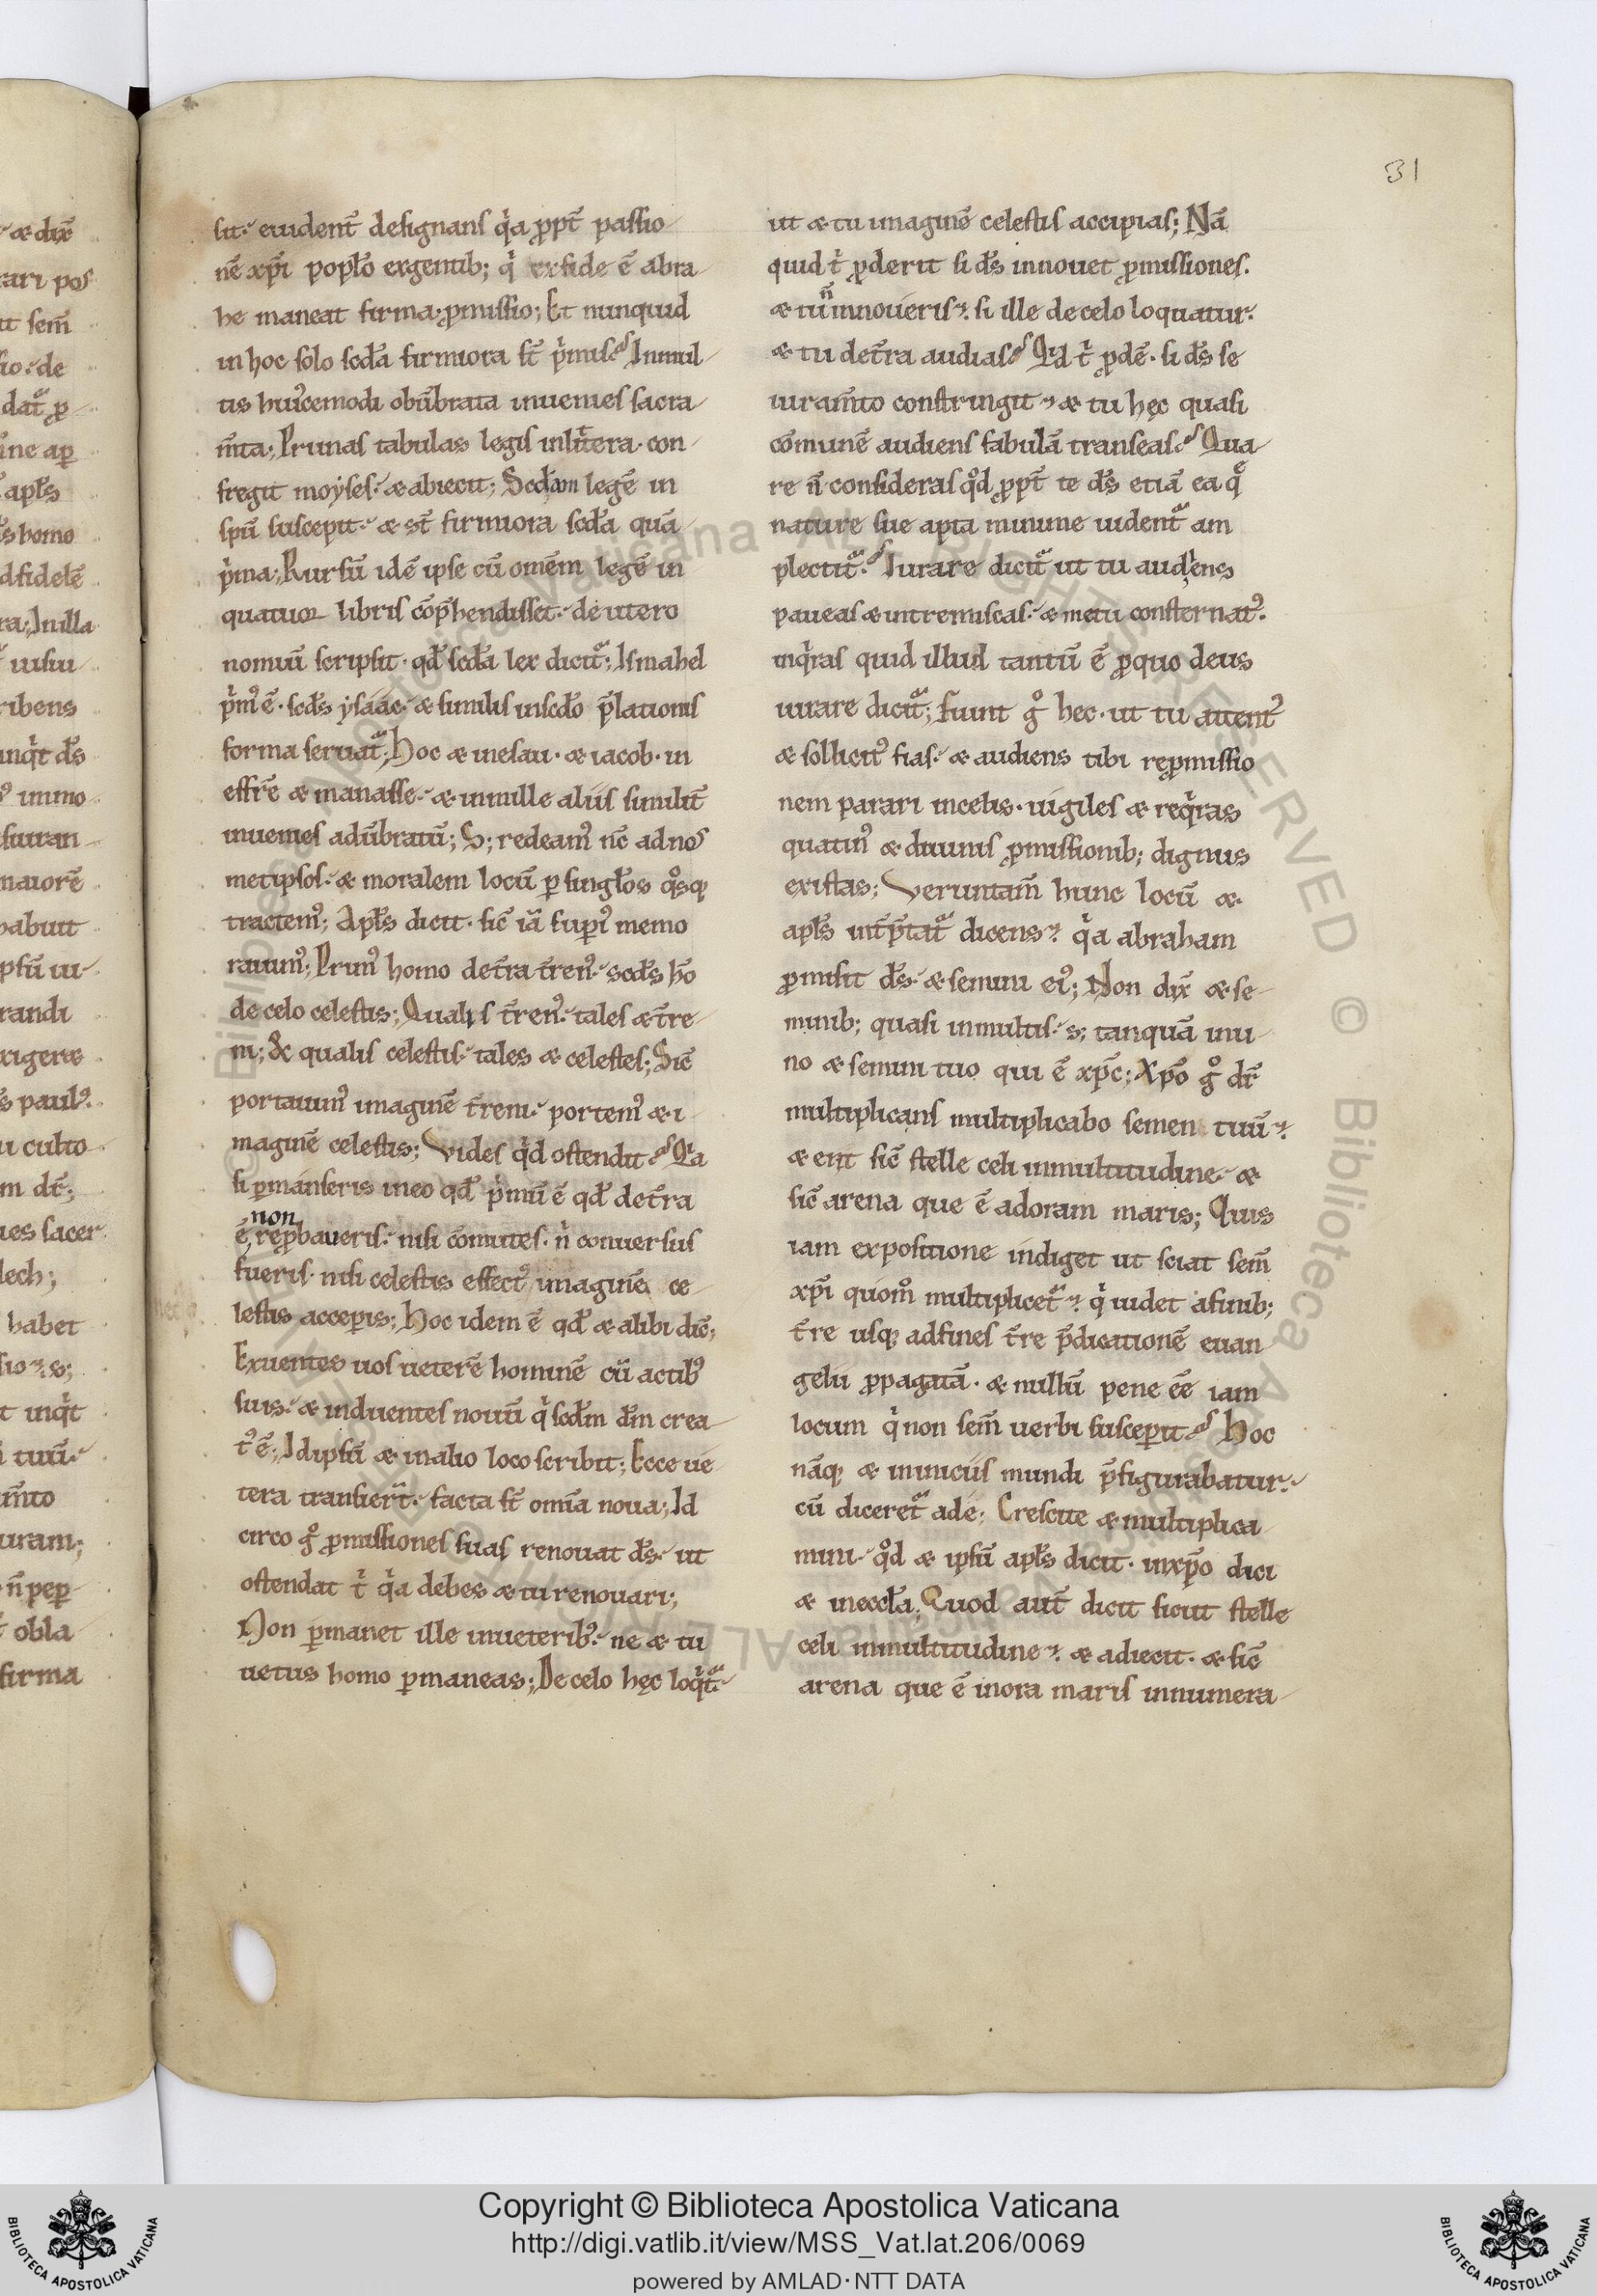 31
sit. euident̄ designans q̇a ꝓpt̄ passio
nē xp̄i popl̄o exgentib; q̇ exfide ē abra
he maneat firma ꝓmissio; Et nunquid
in hoc solo scd̄a firmiora st̄ ṗmis? Inmul
tis huꝰcemodi obūbrata inuenies sacra
m̄ta; Primas tabulas legis inlitt̄era con
fregit moẏses. & abiecit; Scd̄am legē in
spū suscepit. & st̄ firmiora scd̄a quā
ṗma; Rursū idē ipse cū omēm legē in
quatuor libris cōp̄hendisset. deutero
nomiū scripsit. qd̄ scd̄a lex dicit᷑; Ismahel
ṗmꝰ ē. scd̄s ẏsáác. & similis inscd̄o p̄lationis
forma seruat᷑; Hoc & inesau. & iacob. in
effrē & manasse. & inmille aliis similit̄
inuenies adūbratū; S; redeamꝰ nc̄ adnos
metipsos. & moralem locū ꝑ singl̄os q̊sqꝫ
tractemꝰ; Apl̄s dicit. sic̄ iā suꝑiꝰ memo
rauimꝰ; Primꝰ homo det̄ra t̄renꝰ. scd̄s ho̅
de celo celestis; Qualis t̄renꝰ. tales & t̄re
ni; & qualis celestis. tales & celestes; Sic̄
portauimꝰ imaginē t̄reni. portemꝰ & i
maginē celestis; Vides q̇d ostendit? Q̇a
si ꝑmánseris ineo qd̄ ṗmū ē qd̄ det̄ra
non
ē, reꝓbaueris. nisi cōmutes. n̄ conuersus
fueris. nisi celestis effectꝰ imaginē ce
lestis acceꝑis; Hoc idem ē qd̄ & alibi dic̄;
Exuentes uos ueterē hominē cū actibꝰ
suis. & induentes nouū q̇ scd̄m dm̄ crea
tꝰ ē; Idipsū & inalio loco scribit; Ecce ue
tera transier̄t. facta st̄ omīa noua; Id
circo g̊ ꝓmissiones suas renouat ds̄. ut
ostendat ṫ q̇a debes & tu renouari;
Non ꝑmanet ille inueteribꝰ. ne & tu
uetus homo ꝑmaneas; De celo hęc loq̇t᷑
ut & tu imaginē celestis accipias; Nā
quid ṫ ꝓderit si ds̄ innouet ꝓmissiones.
& tu n̄ innoueris? si ille decelo loquatur.
& tu det̄ra audias? Q̇d ṫ ꝓdē. si ds̄ se
iuram̄to constringit. & tu hęc quasi
cōmunē audiens fabulā transeas? Qua
re n̄ consideras q̊d ꝓpt̄ te ds̄ etiā ea q̄
nature sue apta minime uident᷑ am
plectit᷑? Iurare dicit᷑ ut tu audiens
paueas & intremiscas. & metu consternatꝰ.
inq̇ras quid illud tantū ē ꝓquo deus
iurare dicit᷑; Fiunt g̊ hec. ut tu attentꝰ
& sollicitꝰ fias. & audiens tibi reꝓmissio
nem parari incelis. uigiles & req̇ras
quatinꝰ & diuinis ꝓmissionib; dignus
existas; Veruntam̄ hunc locū &
apl̄s int̄p̄tat᷑ dicens. q̇a abraham
ꝓmisit ds̄. & semini eiꝰ; Non dix̄ & se
minib; quasi inmultis. s; tanquā inu
no & semini tuo qui ē xp̄c; Xp̄o g̊ dr̄
multiplicans multiplicabo semen tuū.
& erit sic̄ stelle celi inmultitudine. &
sic̄ arena que ē adoram maris; Quis
iam expositione indiget ut sciat sem̄
xp̄i quom̊ multiplicet᷑. q̇ uidet afinib;
t̄re usqꝫ adfines t̄re p̄dicationē euan
gelii ꝓpagatā. & nullū pene ēē iam
locum q̇ non sem̄ uerbi susceꝑit? Hoc
nāqꝫ & ininiciis mundi p̄figurabatur.
cū diceret᷑ ade; Crescite & multiplica
mini. q̊d & ipsū apl̄s dicit. inxp̄o dici
& ineccl̄a; Quod aut̄ dicit sicut stelle
celi inmultitudine. & adiecit. & sic̄
arena que ē inora maris innumera
Copyright © Biblioteca Apostolica Vaticana
http://digi.vatlib.it/view/MSS_Vat.lat.206/0069
powered by AMLAD·NTT DATA
BIBLIOTECA APOSTOLICA VATICANA
BIBLIOTECA APOSTOLICA VATICANA